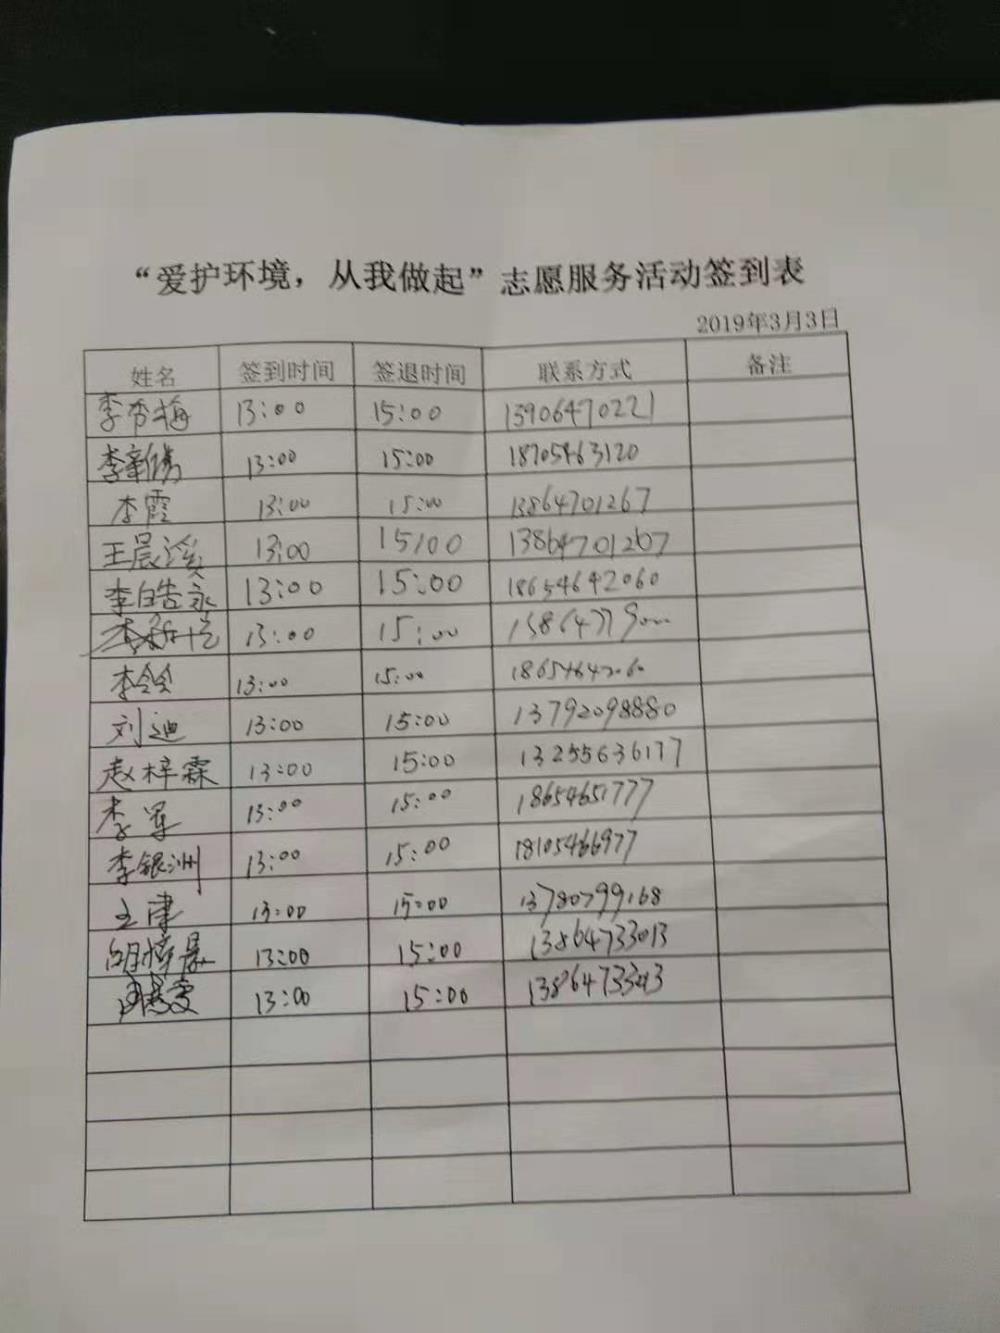 “爱护环境，从我做起”志愿服务活动签到表
2019年3月3日
姓名 签到时间 签退时间 联系方式 备注
李秀梅 13:00 15:00 13906470221
李新锡 13:00 15:00 18705463120
李霞 13:00 15:00 13864701267
王晨溪 13:00 15:00 13864701267
李皓永 13:00 15:00 18654642060
13:00 15:00
13:00 15:00 18654642060
刘迪 13:00 15:00 13792098880
赵梓霖 13:00 15:00 13255636177
李军 13:00 15:00 18654651777
李银洲 13:00 15:00 18105466977
王津 13:00 15:00 13780799168
13:00 15:00 13864733013
13:00 15:00